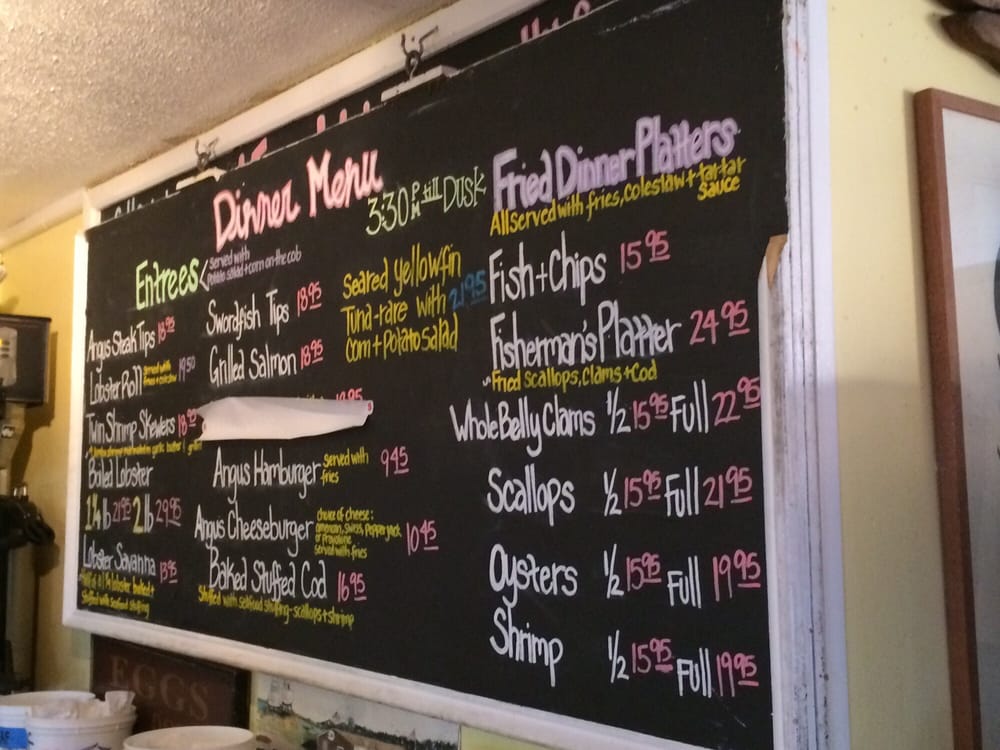 Dinner Menu
3:30 PM till Dusk
Entrees
served with
potato salad + corn on the cob
Angus Steak Tips 18.95
Lobster Roll served with fries + coleslaw 19.50
Twin Shrimp Skewers 18.95
Boiled Lobster
1¼ lb 21.95 2 lb 29.95
Lobster Savanna
half of a 1¼ lobster baked +
stuffed with seafood stuffing
Swordfish Tips 18.95
Grilled Salmon 18.95
Angus Hamburger served with fries 9.45
Angus Cheeseburger 10.45
choice of cheese:
american, swiss, pepperjack
or provolone
served with fries
Baked Stuffed Cod 16.95
Stuffed with seafood stuffing - scallops + shrimp
Seared yellowfin
Tuna-rare with 21.95
Corn + potato salad
Fried Dinner Platters
All served with fries, coleslaw + tartar
sauce
Fish + Chips 15.95
Fisherman's Platter 24.95
Fried scallops, clams + cod
Whole Belly Clams ½ 15.95 Full 22.95
Scallops ½ 15.95 Full 21.95
Oysters ½ 15.95 Full 19.95
Shrimp ½ 15.95 Full 19.95
EGGS